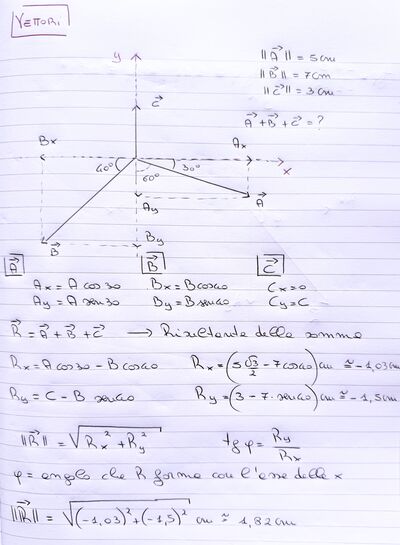 VETTORI
||A⃗|| = 5cm
||B⃗|| = 7cm
||C⃗|| = 3cm
A⃗ + B⃗ + C⃗ = ?
y
C⃗
Bx
Ax
40°
60°
30°
x
Ay
A⃗
B⃗
By
A⃗ B⃗ C⃗
Ax = A cos30 Bx = B cos40 Cx = 0
Ay = A sen30 By = B sen40 Cy = C
R⃗ = A⃗ + B⃗ + C⃗ → Risultante delle somme
Rx = A cos30 - B cos40 Rx = (5√3/2 - 7cos40) cm ≅ -1,03cm
Ry = C - B sen40 Ry = (3 - 7·sen40) cm ≅ -1,5cm
||R⃗|| = √(Rx² + Ry²) tg φ = Ry/Rx
φ = angolo che R forma con l'asse delle x
||R⃗|| = √((-1,03)² + (-1,5)²) cm ≅ 1,82cm